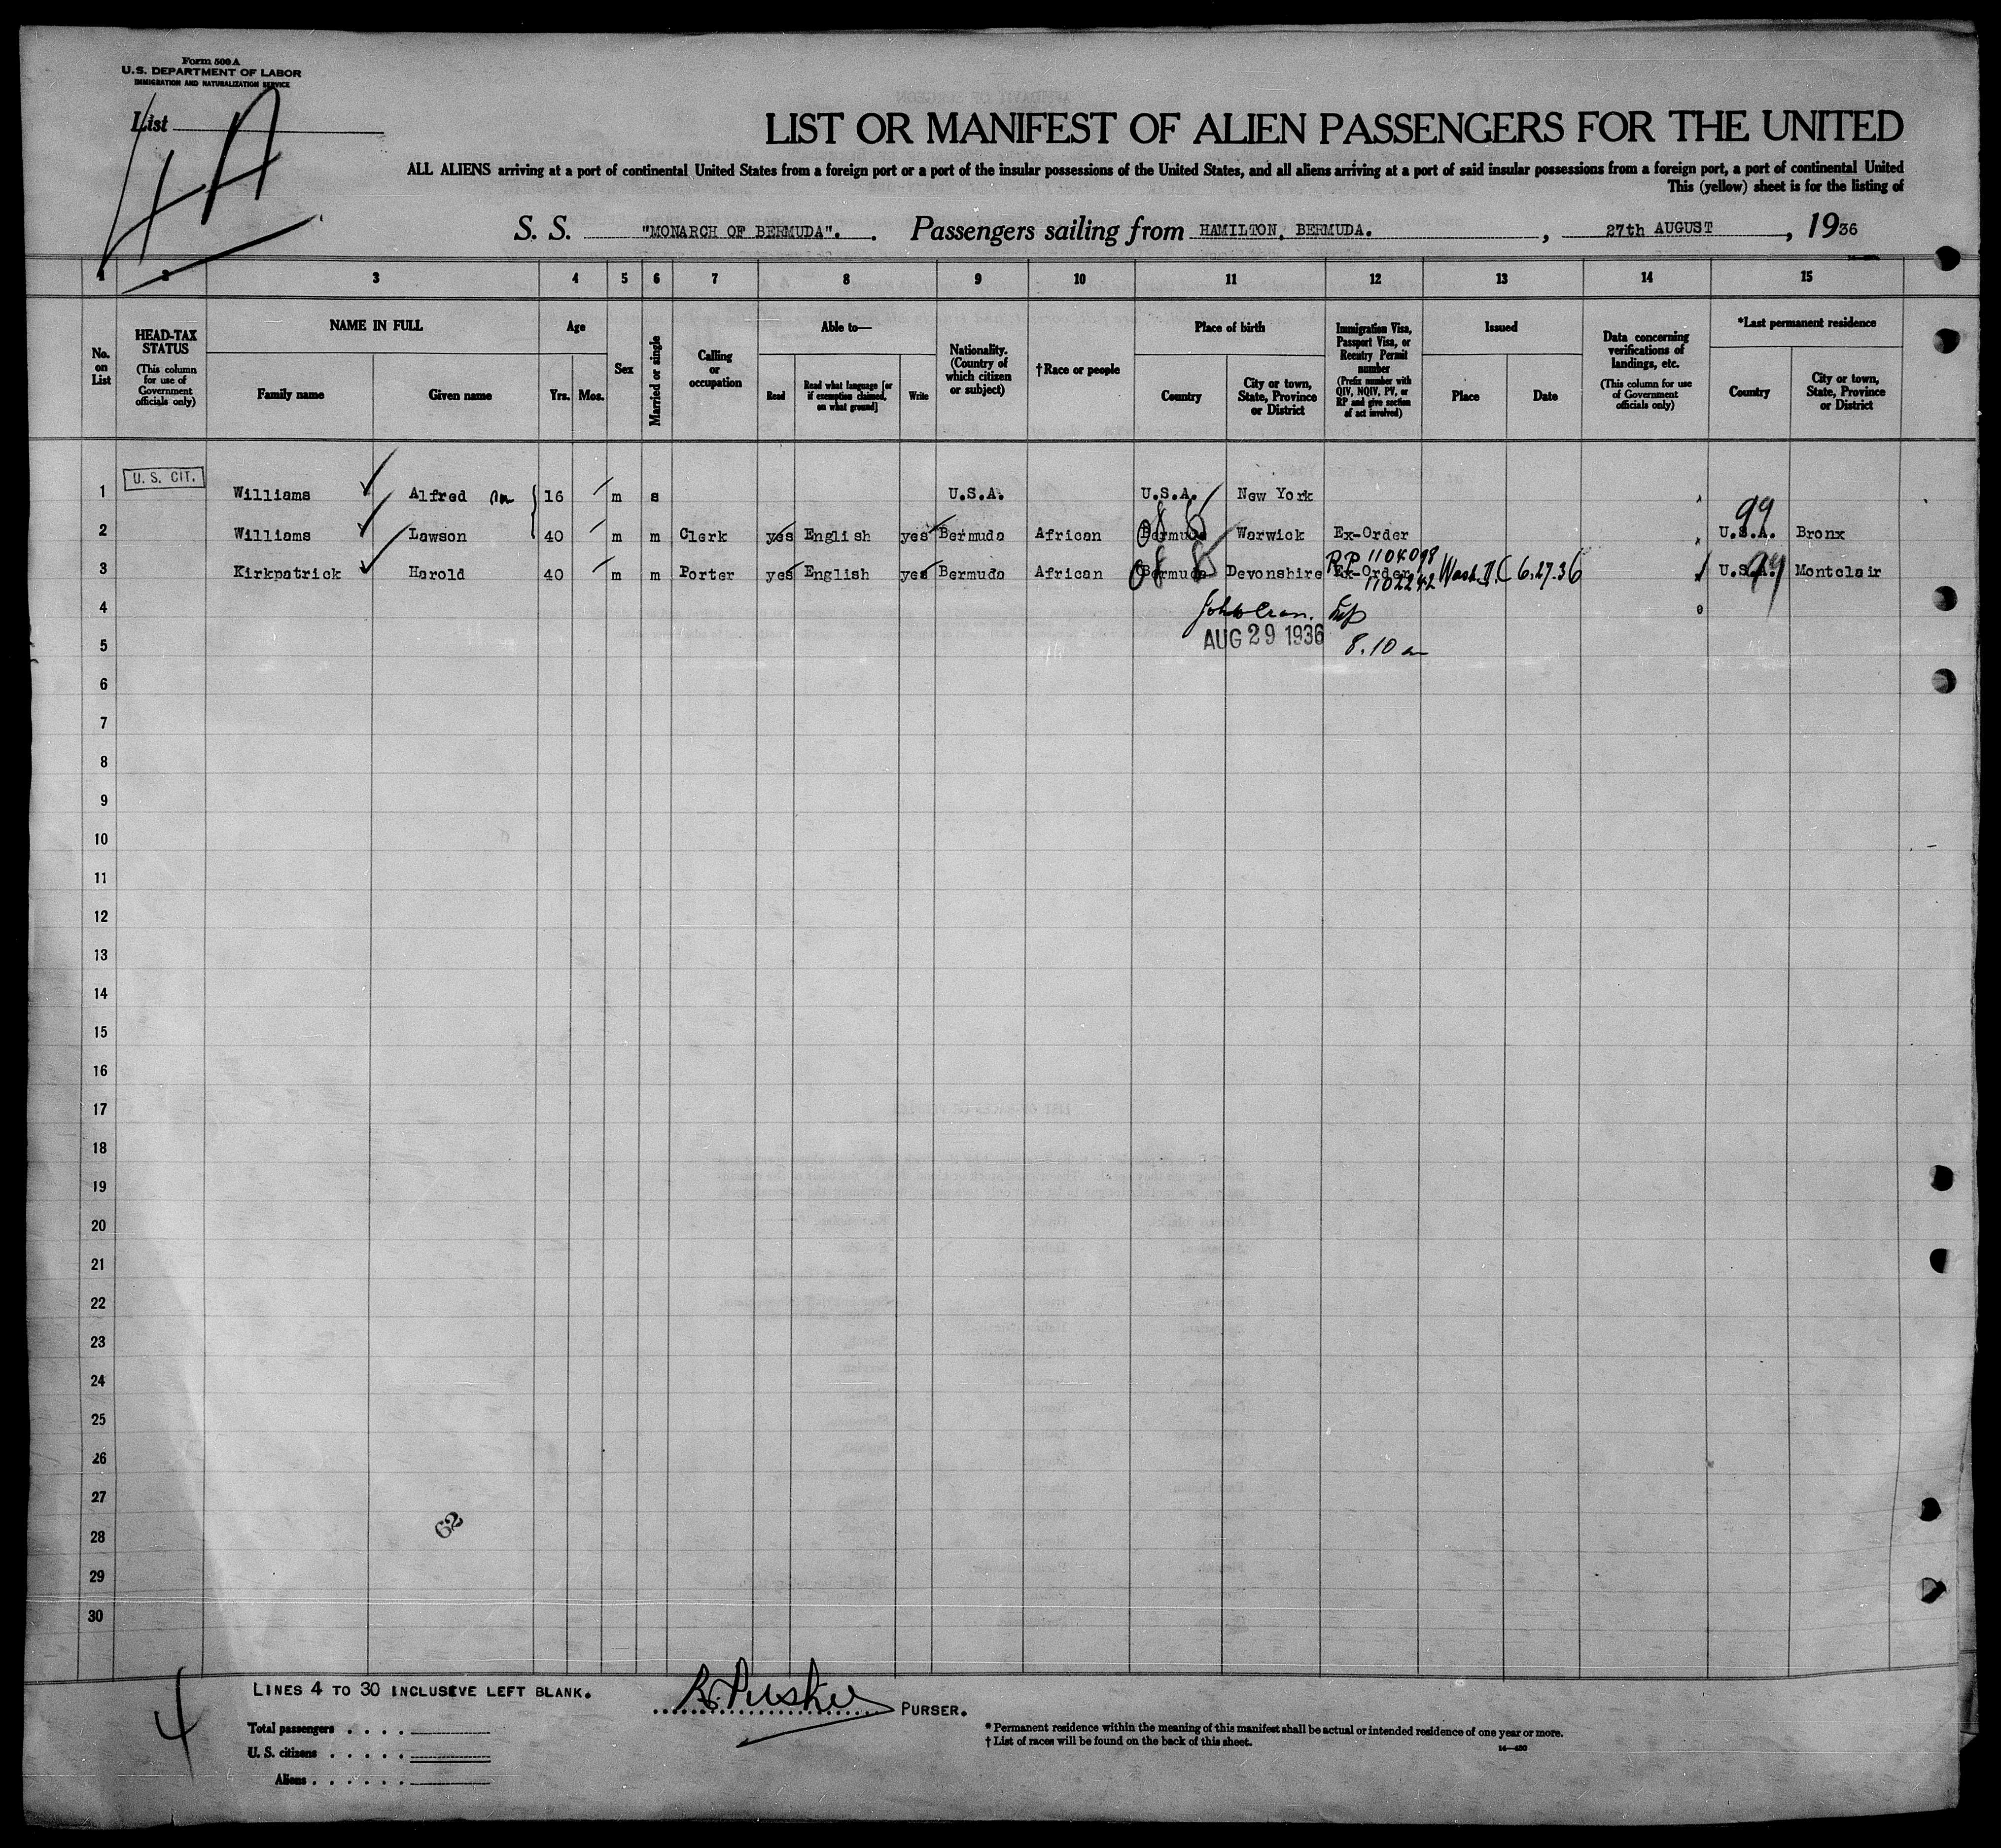 Form 500 A
U.S. DEPARTMENT OF LABOR
IMMIGRATION AND NATURALIZATION SERVICE
List
4A
LIST OR MANIFEST OF ALIEN PASSENGERS FOR THE UNITED
ALL ALIENS arriving at a port of continental United States from a foreign port or a port of the insular possessions of the United States, and all aliens arriving at a port of said insular possessions from a foreign port, a port of continental United
This (yellow) sheet is for the listing of
S. S. "MONARCH OF BERMUDA". Passengers sailing from HAMILTON, BERMUDA. , 27th AUGUST , 1936
1 2 3 4 5 6 7 8 9 10 11 12 13 14 15
No. on List
HEAD-TAX STATUS
(This column for use of Government officials only)
NAME IN FULL
Family name
Given name
Age
Yrs. Mos.
Sex
Married or single
Calling or occupation
Able to—
Read
Read what language [or if exemption claimed, on what ground]
Write
Nationality. (Country of which citizen or subject)
†Race or people
Place of birth
Country
City or town, State, Province or District
Immigration Visa, Passport Visa, or Reentry Permit number
(Prefix number with QIV, NQIV, PV, or RP and give section of act involved)
Issued
Place
Date
Data concerning verifications of landings, etc.
(This column for use of Government officials only)
*Last permanent residence
Country
City or town, State, Province or District
1 U. S. CIT. Williams Alfred 16 m s U.S.A. U.S.A. New York
2 Williams Lawson 40 m m Clerk yes English yes Bermuda African Bermuda Warwick Ex-Order U.S.A. Bronx
99
RP 1104098
3 Kirkpatrick Harold 40 m m Porter yes English yes Bermuda African Bermuda Devonshire Ex-Order Wash. D.C 6.27.36 U.S.A. Montclair
1102242
99
4
AUG 29 1936
5 8.10 am
6
7
8
9
10
11
12
13
14
15
16
17
18
19
20
21
22
23
24
25
26
27
62
28
29
30
4
LINES 4 TO 30 INCLUSIVE LEFT BLANK.
PURSER.
Total passengers . . . .
U. S. citizens . . . . .
Aliens . . . . . .
* Permanent residence within the meaning of this manifest shall be actual or intended residence of one year or more.
† List of races will be found on the back of this sheet.
14—430